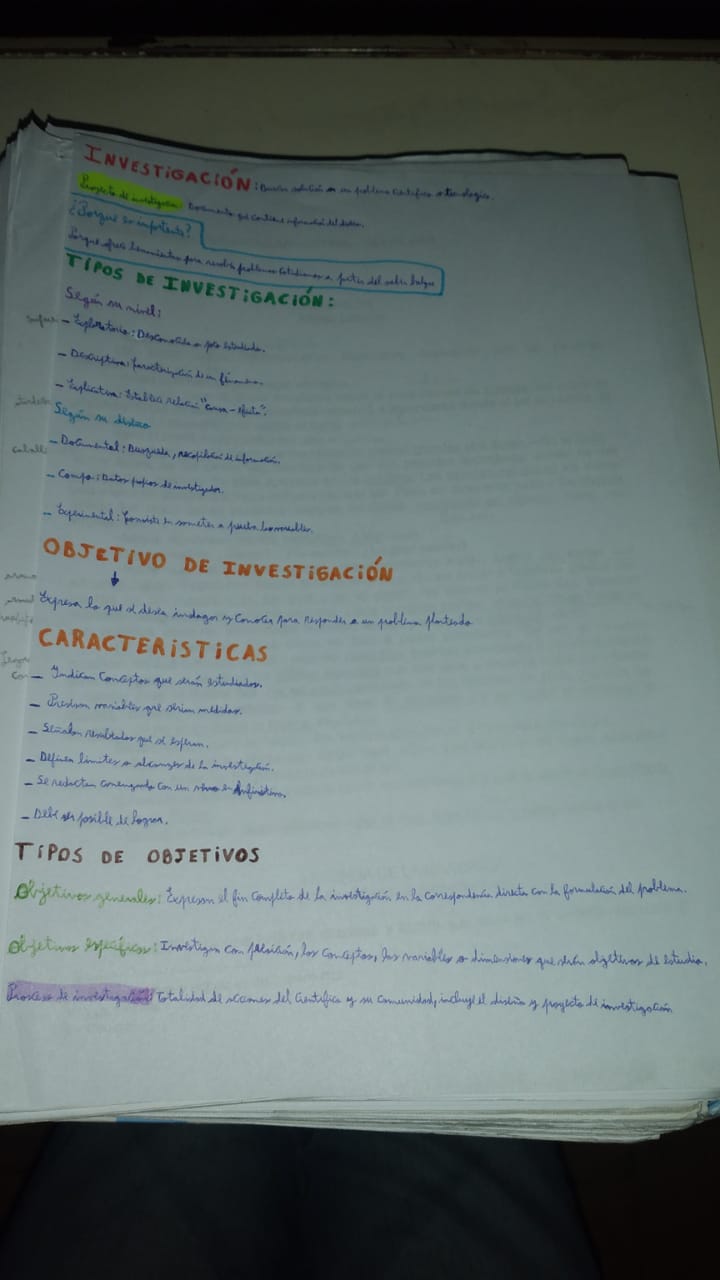 INVESTIGACIÓN: Buscan solución a un problema científico o tecnologico.
Proyecto de investigación: Documento que contiene información del diseño.
¿Porque es importante?
Porque ofrece herramientas para resolver problemas cotidianos a partir del saber
TIPOS DE INVESTIGACIÓN:
Según su nivel:
- Exploratoria: Desconocida o poco estudiada.
- Descriptiva: Caracterización de un fenómeno.
- Explicativa: Establece relación "causa - efecto".
Según su diseño
- Documental: Busqueda, recopilación de información.
- Campo: Datos propios de investigador.
- Experimental: Consiste en someter a prueba las variables.
OBJETIVO DE INVESTIGACIÓN
Expresa lo que se desea indagar y conocer para responder a un problema planteado
CARACTERISTICAS
- Indican conceptos que serán estudiados.
- variables que serian medidas.
- Señalan resultados que se esperan.
- Definen limites o alcanzes de la investigación.
- Se redactan comenzando con un verbo en infinitivo.
- Debe ser posible de lograr.
TIPOS DE OBJETIVOS
Objetivos generales: Expresan el fin completo de la investigación en la correspondencia directa con la formulación del problema.
Objetivos especificos: Investigan con precisión, los conceptos, las variables o dimensiones que serán objetivos de estudio.
Proceso de investigación: Totalidad de acciones del científico y su comunidad, incluye el diseño y proyecto de investigación